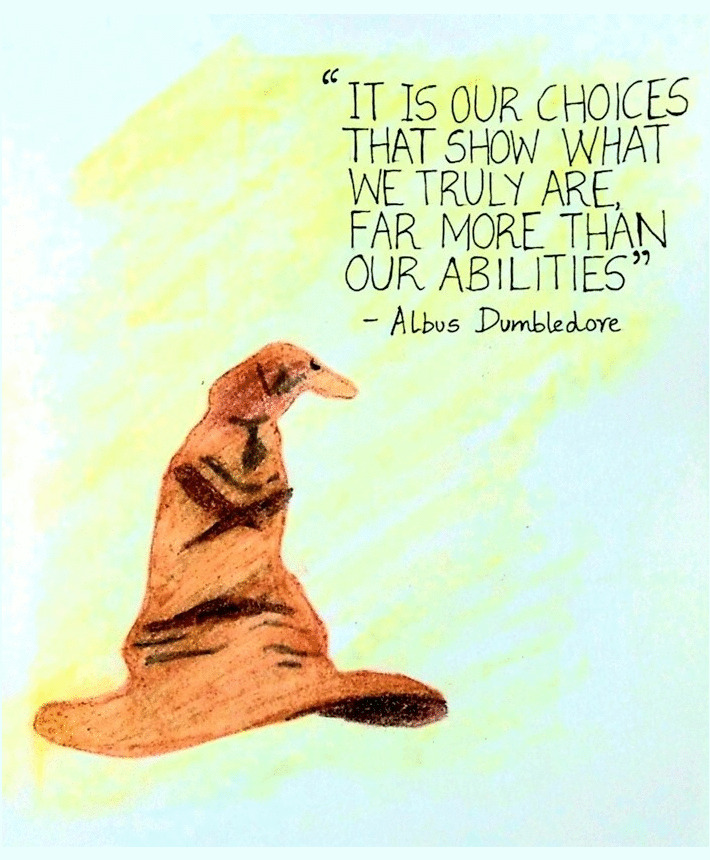 “IT IS OUR CHOICES
THAT SHOW WHAT
WE TRULY ARE,
FAR MORE THAN
OUR ABILITIES”
- Albus Dumbledore